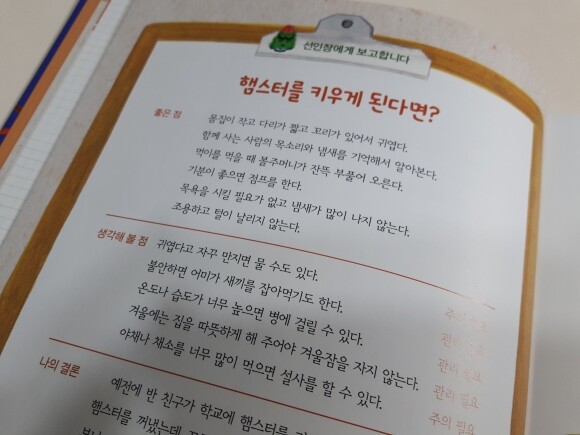 선인장에게 보고합니다
햄스터를 키우게 된다면?
좋은 점
몸집이 작고 다리가 짧고 꼬리가 있어서 귀엽다.
함께 사는 사람의 목소리와 냄새를 기억해서 알아본다.
먹이를 먹을 때 볼주머니가 잔뜩 부풀어 오른다.
기분이 좋으면 점프를 한다.
목욕을 시킬 필요가 없고 냄새가 많이 나지 않는다.
조용하고 털이 날리지 않는다.
생각해 볼 점
귀엽다고 자꾸 만지면 물 수도 있다.
불안하면 어미가 새끼를 잡아먹기도 한다.
온도나 습도가 너무 높으면 병에 걸릴 수 있다. 관리 필요
겨울에는 집을 따뜻하게 해 주어야 겨울잠을 자지 않는다. 관리 필요
야채나 채소를 너무 많이 먹으면 설사를 할 수 있다. 주의 필요
나의 결론
예전에 반 친구가 학교에 햄스터를
햄스터를 꺼냈는데